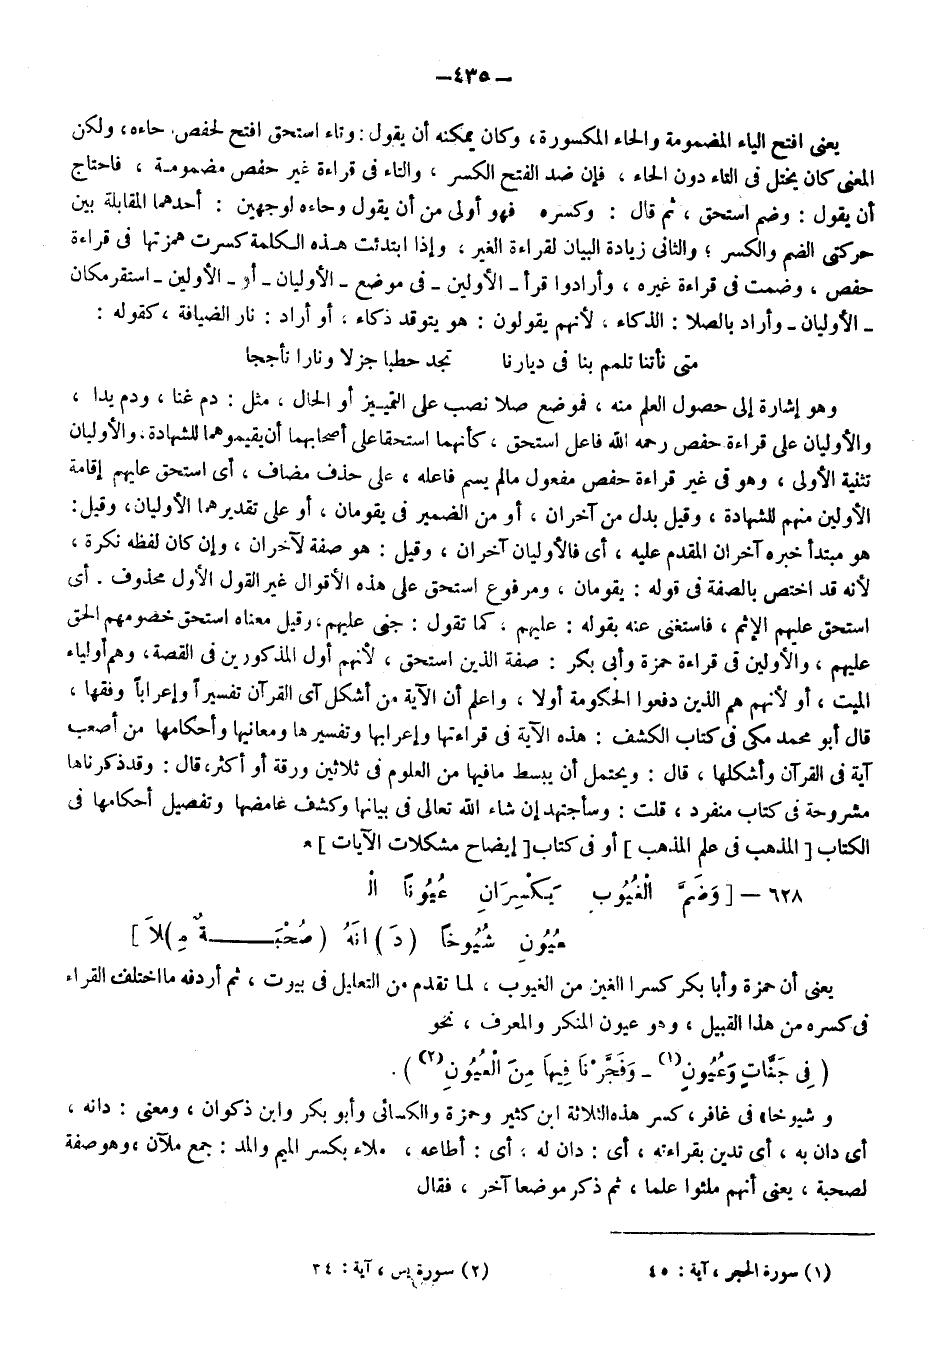 — ٤٣٥ —
يعنى افتح الياء المضمومة والحاء المكسورة، وكان يمكنه أن يقول: وتاء استحق افتح لحفص. حاءه، ولكن
المعنى كان يختل فى التاء دون الحاء ، فإن ضد الفتح الكسر ، والتاء فى قراءة غير حفص مضمومة ، فاحتاج
أن يقول : وضم استحق ، ثم قال : وكسره فهو أولى من أن يقول وحاءه لوجهين : أحدهما المقابلة بين
حركتى الضم والكسر ؛ والثانى زيادة البيان لقراءة الغير ، وإذا ابتدئت هذه الكلمة كسرت همزتها فى قراءة
حفص ، وضمت فى قراءة غيره ، وأرادوا قرأ ـ الأولين ـ فى موضع ـ الأوليان ـ أو ـ الأولين ـ استقر مكان
ـ الأوليان ـ وأراد بالصلا : الذكاء ، لأنهم يقولون : هو يتوقد ذكاء ، أو أراد : نار الضيافة ، كقوله :
متى تأتنا تلمم بنا فى ديارنا تجد حطبا جزلا ونارا تأججا
وهو إشارة إلى حصول العلم منه ، فموضع صلا نصب على التمييز أو الحال ، مثل : دم غنا ، ودم يدا ،
والأوليان على قراءة حفص رحمه الله فاعل استحق ، كأنهما استحقا على أصحابهما أن يقيموهما للشهادة. والأوليان
تثنية الأولى ، وهو فى غير قراءة حفص مفعول مالم يسم فاعله ، على حذف مضاف ، أى استحق عليهم إقامة
الأولين منهم للشهادة ، وقيل بدل من آخران ، أو من الضمير فى يقومان ، أو على تقديرهما الأوليان، وقيل:
هو مبتدأ خبره آخران المقدم عليه ، أى فالأوليان آخران ، وقيل : هو صفة لآخران ، وإن كان لفظه نكرة ،
لأنه قد اختص بالصفة فى قوله : يقومان ، ومرفوع استحق على هذه الأقوال غير القول الأول محذوف . أى
استحق عليهم الإثم ، فاستغنى عنه بقوله : عليهم ، كما تقول : جنى عليهم، وقيل معناه استحق خصومهم الحق
عليهم ، والأولين فى قراءة حمزة وأبى بكر : صفة الذين استحق ، لأنهم أول المذكورين فى القصة، وهم أولياء
الميت ، أو لأنهم هم الذين دفعوا الحكومة أولا ، واعلم أن الآية من أشكل آى القرآن تفسيراً وإعراباً وفقها ،
قال أبو محمد مكى فى كتاب الكشف : هذه الآية فى قراءتها وإعرابها وتفسيرها ومعانيها وأحكامها من أصعب
آية فى القرآن وأشكلها ، قال : ويحتمل أن يبسط مافيها من العلوم فى ثلاثين ورقة أو أكثر، قال : وقد ذكرناها
مشروحة فى كتاب منفرد ، قلت : وسأجتهد إن شاء الله تعالى فى بيانها وكشف غامضها وتفصيل أحكامها فى
الكتاب [ المذهب فى علم المذهب ] أو فى كتاب [ إيضاح مشكلات الآيات ]
٦٢٨ — [ وَضَمَّ الْغُيُوبِ يَكْسِرَانِ عُيُونًا الْـ
عُيُونِ شُيُوخًا (دَ) انَهُ (صُحْبَـــــةٌ مِـ)لَا ]
يعنى أن حمزة وأبا بكر كسرا الغين من الغيوب ، لما تقدم من التعليل فى بيوت ، ثم أردفه ما اختلف القراء
فى كسره من هذا القبيل ، وهو عيون المنكر والمعرف ، نحو
( فِى جَنَّاتٍ وَعُيُونٍ (١) ـ وَفَجَّرْنَا فِيهَا مِنَ الْعُيُونِ (٢) ) .
و شيوخا، فى غافر، كسر هذه الثلاثة ابن كثير وحمزة والكسائى وأبو بكر وابن ذكوان ، ومعنى : دانه ،
أى دان به ، أى تدين بقراءته ، أى : دان له ، أى : أطاعه ، ملاء بكسر الميم والمد : جمع ملآن ، وهو صفة
لصحبة ، يعنى أنهم ملئوا علما ، ثم ذكر موضعا آخر ، فقال
(١) سورة الحجر ، آية : ٤٥ (٢) سورة يس ، آية : ٣٤